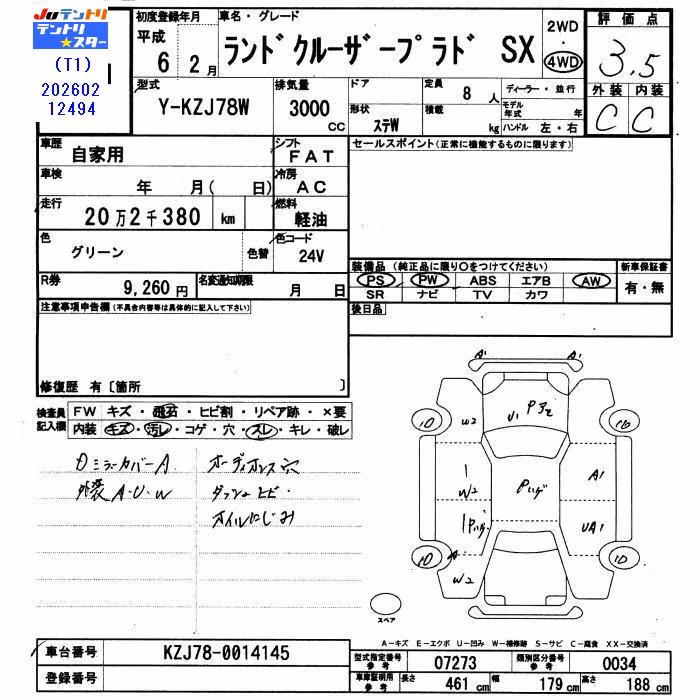 Juテントリ
テントリ★スター
(T1)
202602
12494
初度登録年月
平成 6 2月
車名・グレード
ランドクルーザープラド SX
2WD・4WD
評価点
3.5
外装 内装
C C
型式
Y-KZJ78W
排気量
3000 CC
ドア
形状
ステW
定員
8人
積載
kg
ディーラー・並行
モデル年式 年
ハンドル 左・右
車歴
自家用
シフト
FAT
車検
年 月( 日)
冷房
AC
走行
20万2千380 km
燃料
軽油
色
グリーン
色替
色コード
24V
R券
9,260円
名変通知期限
月 日
セールスポイント(正常に機能するものに限ります)
装備品(純正品に限り○をつけてください)
PS PW ABS エアB AW
SR ナビ TV カワ
新車保証書
有・無
後日品
注意事項申告欄(不具合内容等は具体的に記入して下さい)
修復歴 有〔箇所 〕
検査員記入欄
FW キズ・飛石・ヒビ割・リペア跡・×要
内装 キズ・汚レ・コゲ・穴・スレ・キレ・破レ
Dミラーカバー A
外装 A・U・W
オーディオレス穴
ダッシュヒビ・
オイルにじみ
A1 A1
W2 U1 Pアセ
1 W2 Pハゲ A1
1Pハゲ UA1
A W2
スペア
A-キズ E-エクボ U-凹み W-補修跡 S-サビ C-腐食 XX-交換済
車台番号
KZJ78-0014145
登録番号
型式指定番号 参考
07273
類別区分番号 参考
0034
車庫証明用 参考
長さ 461cm 幅 179cm 高さ 188cm